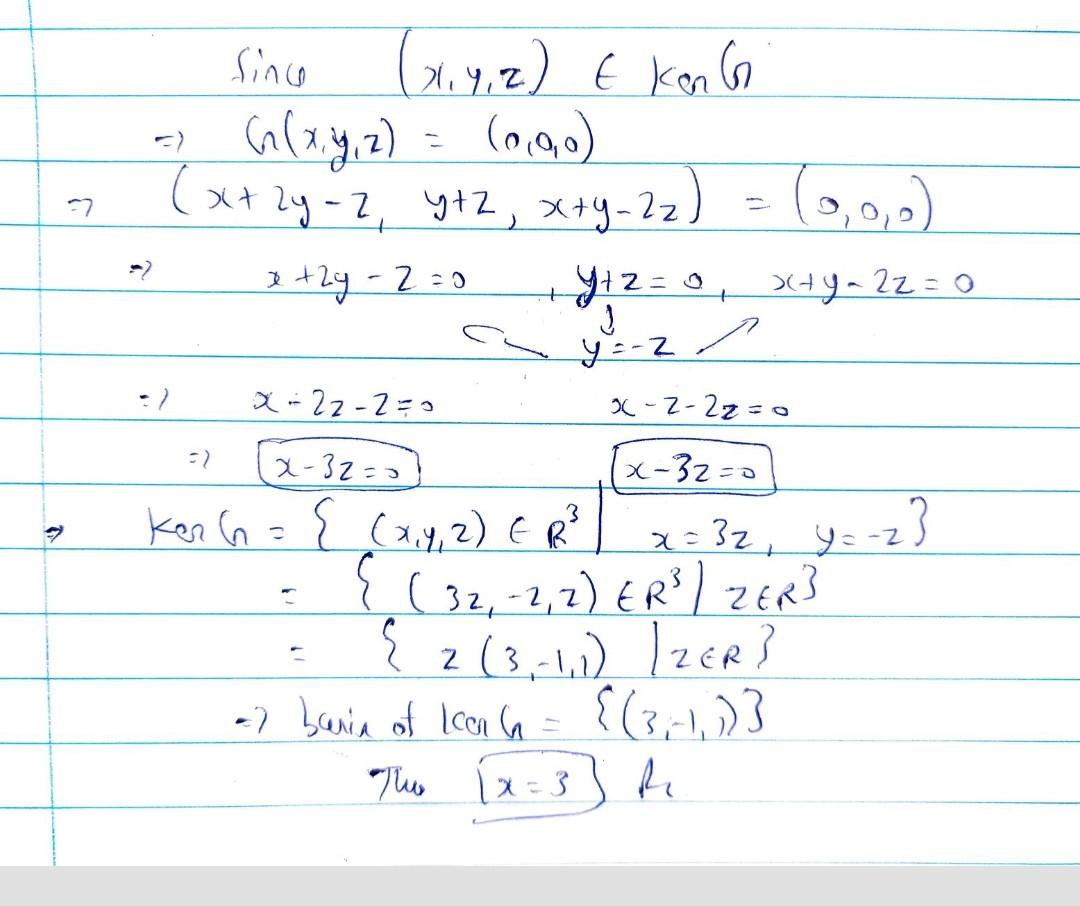 Since (x, y, z) ∈ Ker G
=> G(x, y, z) = (0,0,0)
=> (x + 2y - z, y+z, x+y-2z) = (0,0,0)
=> x + 2y - z = 0 , y+z = 0 , x+y-2z = 0
y = -z
=> x - 2z - z = 0 x - z - 2z = 0
=> x - 3z = 0 x - 3z = 0
=> Ker G = { (x, y, z) ∈ R³ | x = 3z, y = -z }
= { (3z, -z, z) ∈ R³ | z ∈ R }
= { z (3, -1, 1) | z ∈ R }
=> basis of Ker G = {(3, -1, 1)}
Thus x = 3